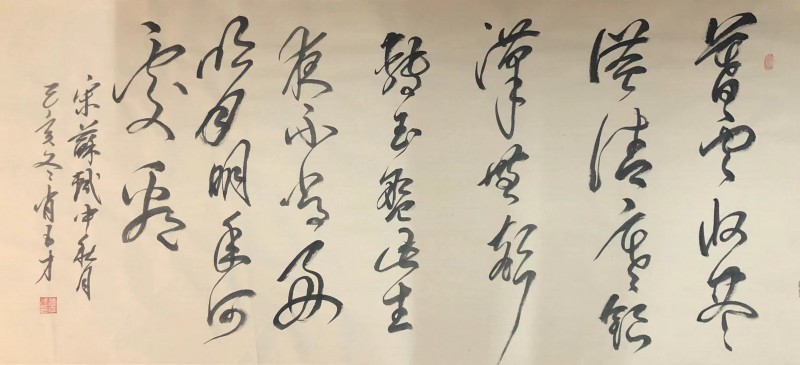 暮雲收盡
溢清寒銀
漢無聲
轉玉盤此生
夜不長好
明月明年何
處看
宋蘇軾中秋月
己亥冬肖玉才